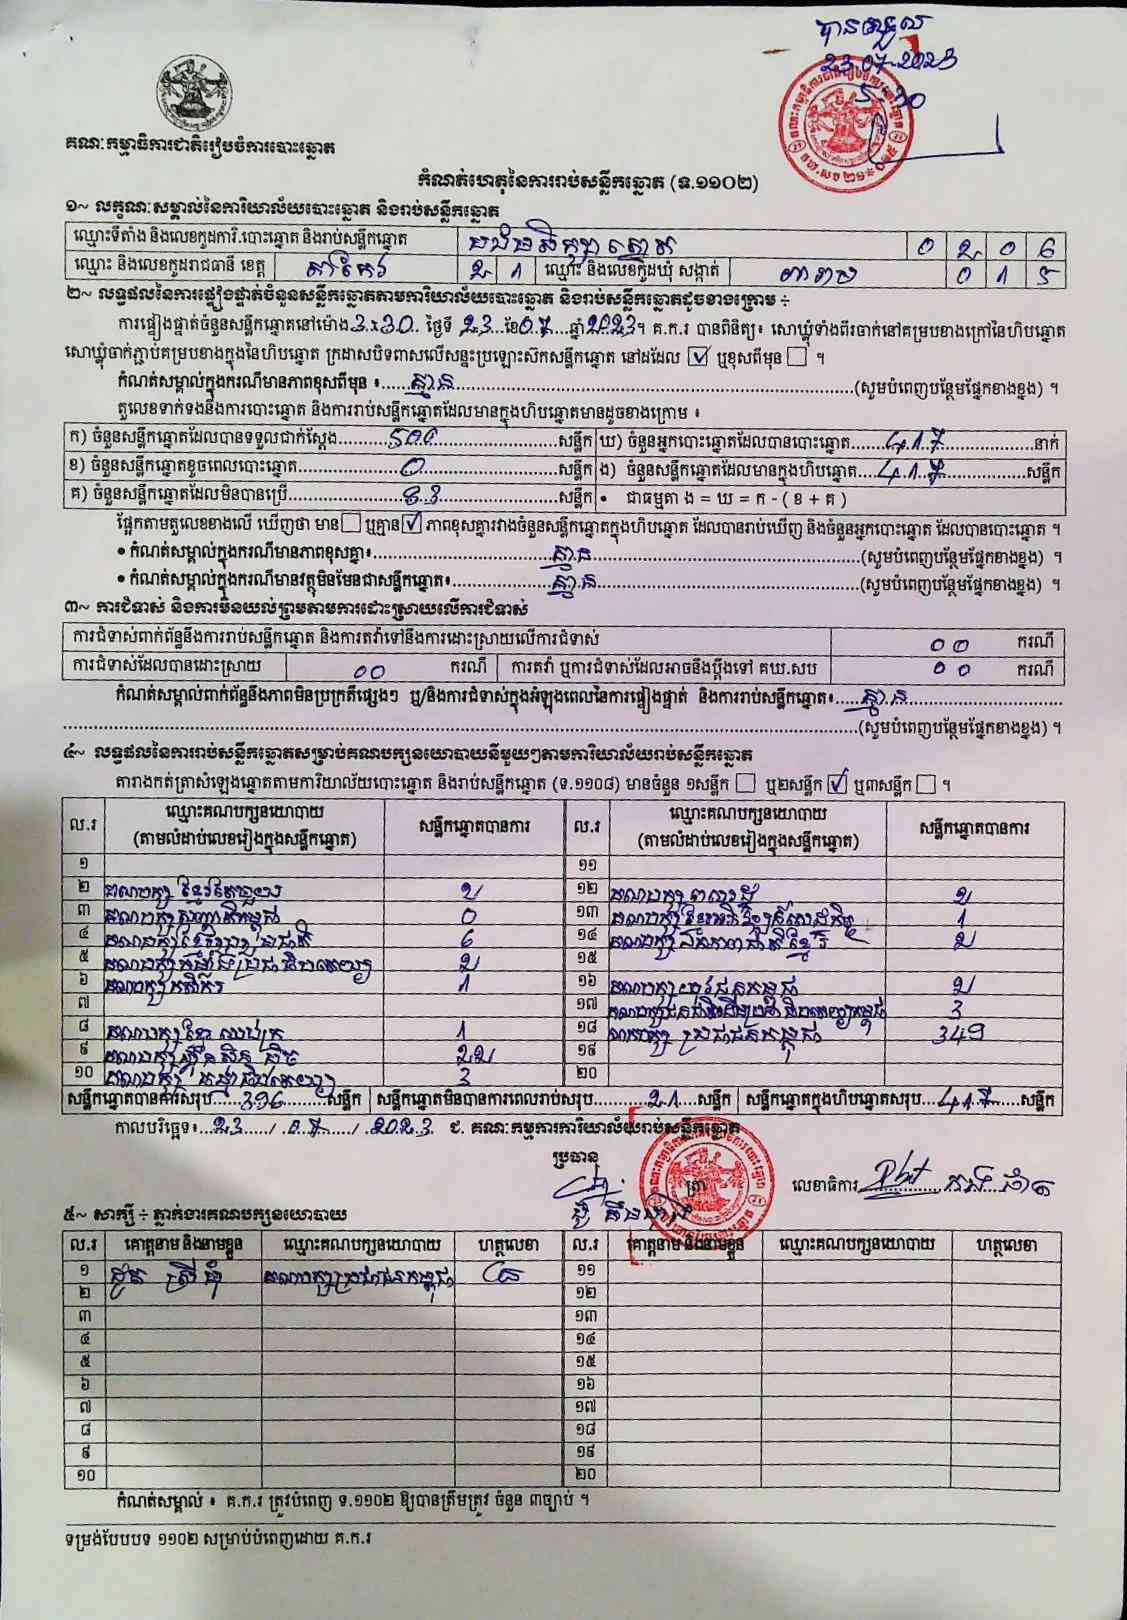 បានទទួល
23.07.2023
5:30
គណៈកម្មាធិការជាតិរៀបចំការបោះឆ្នោត
កំណត់ហេតុនៃការរាប់សន្លឹកឆ្នោត (ទ.១១០២)
១~ លក្ខណៈសម្គាល់នៃការិយាល័យបោះឆ្នោត និងរាប់សន្លឹកឆ្នោត
ឈ្មោះទីតាំង និងលេខកូដការិ.បោះឆ្នោត និងរាប់សន្លឹកឆ្នោត 0 2 0 6
ឈ្មោះ និងលេខកូដរាជធានី ខេត្ត តាកែវ 2 1 ឈ្មោះ និងលេខកូដឃុំ សង្កាត់ 0 1 5
២~ លទ្ធផលនៃការផ្ទៀងផ្ទាត់ចំនួនសន្លឹកឆ្នោតតាមការិយាល័យបោះឆ្នោត និងរាប់សន្លឹកឆ្នោតដូចខាងក្រោម ÷
ការផ្ទៀងផ្ទាត់ចំនួនសន្លឹកឆ្នោតនៅម៉ោង 3:30 ថ្ងៃទី 23 ខែ 07 ឆ្នាំ 2023។ គ.ក.រ បានពិនិត្យ៖ សោឃ្លុំទាំងពីរចាក់នៅគម្របខាងក្រៅនៃហិបឆ្នោត
សោឃ្លុំចាក់ភ្ជាប់គម្របខាងក្នុងនៃហិបឆ្នោត ក្រដាសបិទពាសលើសន្ទះប្រឡោះស៊កសន្លឹកឆ្នោត នៅដដែល ☑ ឬខុសពីមុន ☐ ។
កំណត់សម្គាល់ក្នុងករណីមានភាពខុសពីមុន ៖ គ្មាន (សូមបំពេញបន្ថែមផ្នែកខាងខ្នង) ។
តួលេខទាក់ទងនឹងការបោះឆ្នោត និងការរាប់សន្លឹកឆ្នោតដែលមានក្នុងហិបឆ្នោតមានដូចខាងក្រោម ៖
ក) ចំនួនសន្លឹកឆ្នោតដែលបានទទួលជាក់ស្តែង 500 សន្លឹក ឃ) ចំនួនអ្នកបោះឆ្នោតដែលបានបោះឆ្នោត 417 នាក់
ខ) ចំនួនសន្លឹកឆ្នោតខូចពេលបោះឆ្នោត 0 សន្លឹក ង) ចំនួនសន្លឹកឆ្នោតដែលមានក្នុងហិបឆ្នោត 417 សន្លឹក
គ) ចំនួនសន្លឹកឆ្នោតដែលមិនបានប្រើ 83 សន្លឹក • ជាធម្មតា ង = ឃ = ក - ( ខ + គ )
ផ្អែកតាមតួលេខខាងលើ ឃើញថា មាន ☐ ឬគ្មាន ☑ ភាពខុសគ្នារវាងចំនួនសន្លឹកឆ្នោតក្នុងហិបឆ្នោត ដែលបានរាប់ឃើញ និងចំនួនអ្នកបោះឆ្នោត ដែលបានបោះឆ្នោត ។
• កំណត់សម្គាល់ក្នុងករណីមានភាពខុសគ្នា៖ គ្មាន (សូមបំពេញបន្ថែមផ្នែកខាងខ្នង) ។
• កំណត់សម្គាល់ក្នុងករណីមានវត្ថុមិនមែនជាសន្លឹកឆ្នោត៖ គ្មាន (សូមបំពេញបន្ថែមផ្នែកខាងខ្នង) ។
៣~ ការជំទាស់ និងការមិនយល់ព្រមតាមការដោះស្រាយលើការជំទាស់
ការជំទាស់ពាក់ព័ន្ធនឹងការរាប់សន្លឹកឆ្នោត និងការតវ៉ាទៅនឹងការដោះស្រាយលើការជំទាស់ 00 ករណី
ការជំទាស់ដែលបានដោះស្រាយ 00 ករណី ការតវ៉ា ឬការជំទាស់ដែលអាចនឹងប្តឹងទៅ គឃ.សប 00 ករណី
កំណត់សម្គាល់ពាក់ព័ន្ធនឹងភាពមិនប្រក្រតីផ្សេងៗ ឬ/និងការជំទាស់ក្នុងអំឡុងពេលនៃការផ្ទៀងផ្ទាត់ និងការរាប់សន្លឹកឆ្នោត៖ គ្មាន
(សូមបំពេញបន្ថែមផ្នែកខាងខ្នង) ។
៤~ លទ្ធផលនៃការរាប់សន្លឹកឆ្នោតសម្រាប់គណបក្សនយោបាយនីមួយៗតាមការិយាល័យរាប់សន្លឹកឆ្នោត
តារាងកត់ត្រាសំឡេងឆ្នោតតាមការិយាល័យបោះឆ្នោត និងរាប់សន្លឹកឆ្នោត (ទ.១១០៨) មានចំនួន ១សន្លឹក ☐ ឬ២សន្លឹក ☑ ឬ៣សន្លឹក ☐ ។
ល.រ ឈ្មោះគណបក្សនយោបាយ (តាមលំដាប់លេខរៀងក្នុងសន្លឹកឆ្នោត) សន្លឹកឆ្នោតបានការ ល.រ ឈ្មោះគណបក្សនយោបាយ (តាមលំដាប់លេខរៀងក្នុងសន្លឹកឆ្នោត) សន្លឹកឆ្នោតបានការ
១ ១១
២ គណបក្ស ខ្មែរតែមួយ 2 ១២ គណបក្ស 2
៣ គណបក្ស 0 ១៣ គណបក្ស ខ្មែរអភិវឌ្ឍន៍សេដ្ឋកិច្ច 1
៤ គណបក្ស 6 ១៤ គណបក្ស ឯកភាពជាតិខ្មែរ 2
៥ គណបក្ស ប្រជាធិបតេយ្យ 2 ១៥
៦ គណបក្ស កសិករ 1 ១៦ គណបក្ស យុវជនកម្ពុជា 2
៧ ១៧ គណបក្ស ជនជាតិដើមប្រជាធិបតេយ្យកម្ពុជា 3
៨ គណបក្ស ខ្មែរឈប់ក្រ 1 ១៨ គណបក្ស ប្រជាជនកម្ពុជា 349
៩ គណបក្ស ហ៊្វុនស៊ិនប៉ិច 22 ១៩
១០ គណបក្ស ធម្មាធិបតេយ្យ 3 ២០
សន្លឹកឆ្នោតបានការសរុប 396 សន្លឹក សន្លឹកឆ្នោតមិនបានការពេលរាប់សរុប 21 សន្លឹក សន្លឹកឆ្នោតក្នុងហិបឆ្នោតសរុប 417 សន្លឹក
កាលបរិច្ឆេទ៖ 23 / 07 / 2023 ជ. គណៈកម្មការការិយាល័យរាប់សន្លឹកឆ្នោត
ប្រធាន ត្រា លេខាធិការ
៥~ សាក្សី ÷ ភ្នាក់ងារគណបក្សនយោបាយ
ល.រ គោត្តនាម និងនាមខ្លួន ឈ្មោះគណបក្សនយោបាយ ហត្ថលេខា ល.រ គោត្តនាម និងនាមខ្លួន ឈ្មោះគណបក្សនយោបាយ ហត្ថលេខា
១ គណបក្សប្រជាជនកម្ពុជា ១១
២ ១២
៣ ១៣
៤ ១៤
៥ ១៥
៦ ១៦
៧ ១៧
៨ ១៨
៩ ១៩
១០ ២០
កំណត់សម្គាល់ ៖ គ.ក.រ ត្រូវបំពេញ ទ.១១០២ ឱ្យបានត្រឹមត្រូវ ចំនួន ៣ច្បាប់ ។
ទម្រង់បែបបទ ១១០២ សម្រាប់បំពេញដោយ គ.ក.រ